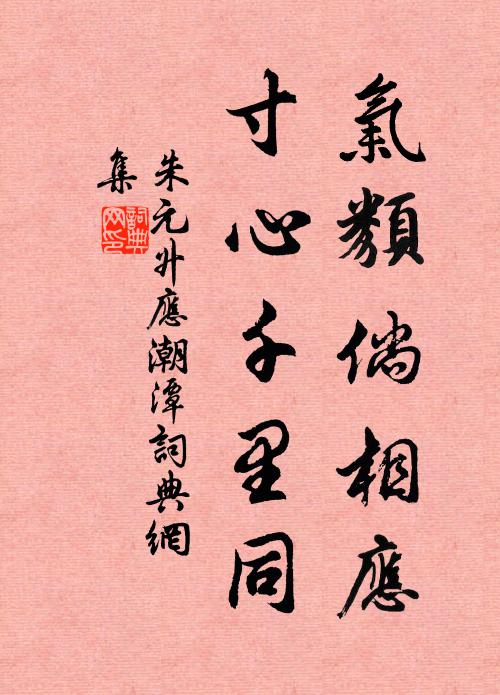 氣類倘相應
寸心千里同
朱元升應潮潭詞典網
集
詞典
网印